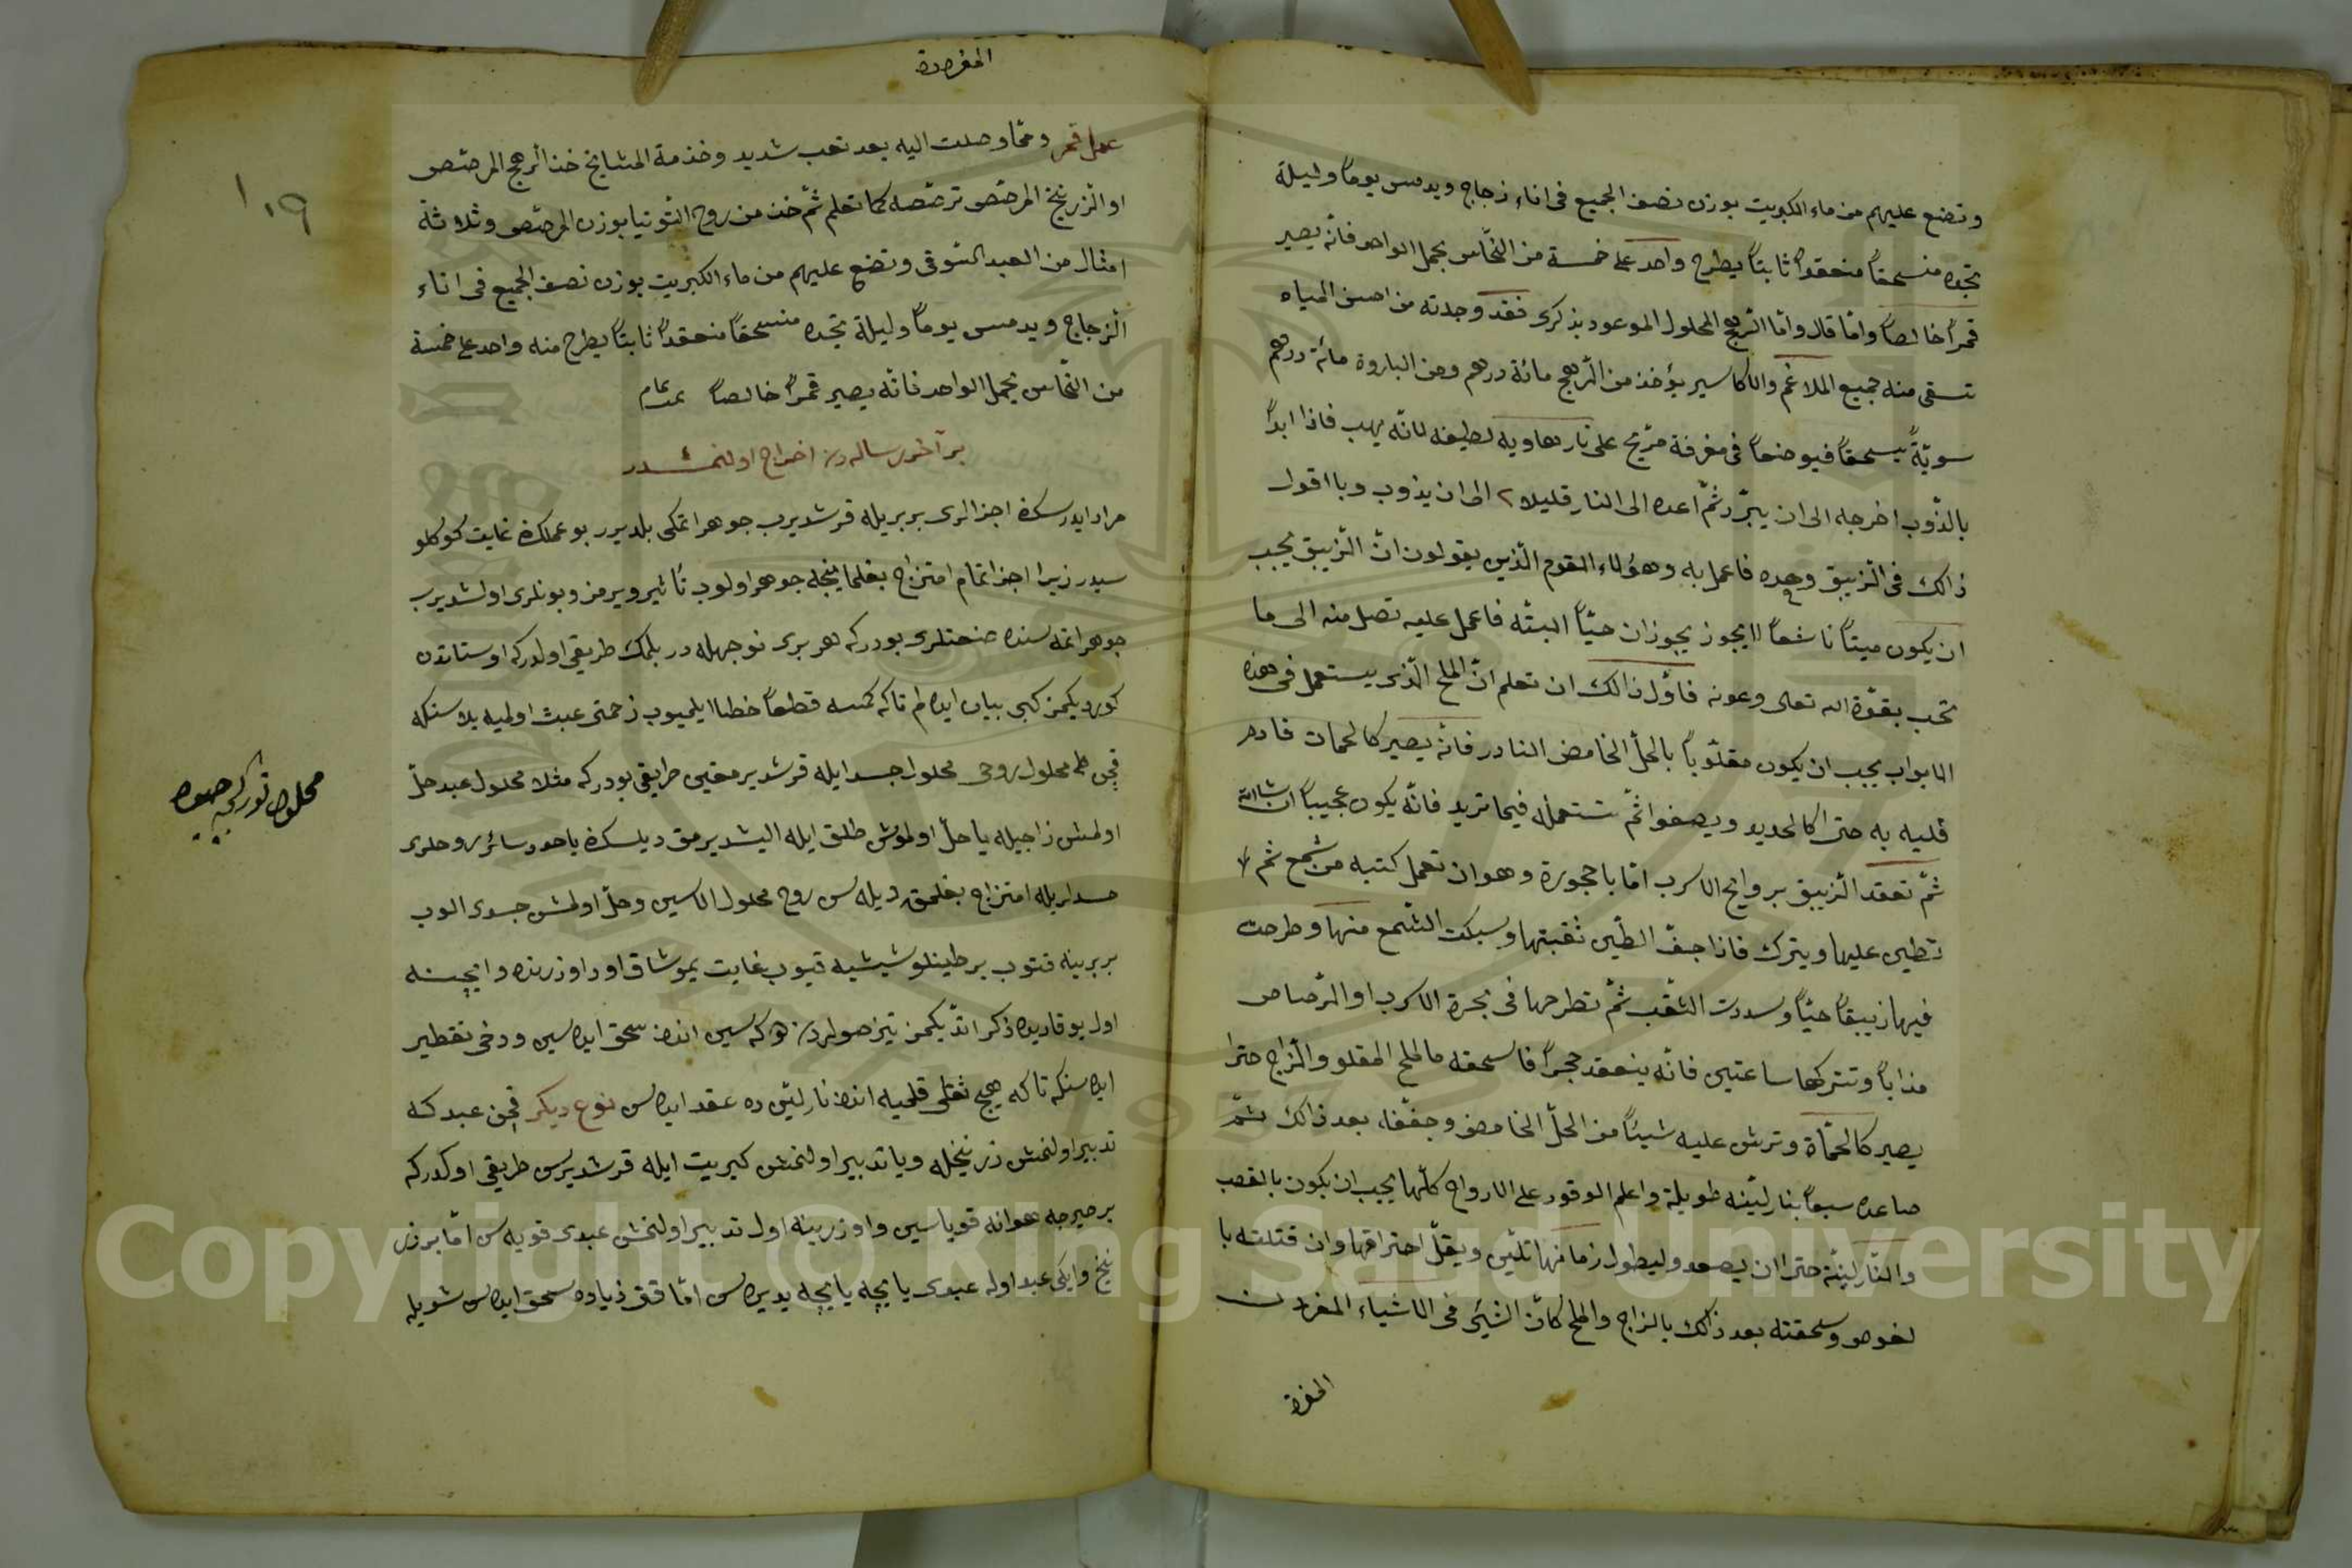 وتضع عليهم من ماء الكبريت بوزن نصف الجميع فى اناء زجاج ويدمس يوماً وليلة
تجده منسحقاً منعقداً ثابتاً يطرح واحد على خمسة من النحّاس بجمل الواحد فانّه يصير
قمراً خالصاً وامّا قال وامّا الرّهج المحلول الموعود بذكرى فقد وجدته من احسن المياه
تسقى منه جميع الملاغم والاكاسير يؤخذ من الرّهج مائة درهم ومن الباروة مائة درهم
سويّةً يسحقاً فيوضعاً فى مغرفة مرّيخ على نار هاويه لطيفه لانّه يهب فاذا ابداً
بالذّوب اخرجه الى ان يبرّد ثمّ اعده الى النار قليلا ٢ الى ان يذوب وبا اقول
ذالك فى الزّيبق وحده فاعمل به وهؤلاء القوم الّذين يقولون انّ الزّيبق يجب
ان يكون ميتاً ناشفاً لا يجوز يجوز ان حيّاً البتّه فاعمل عليه تصل منه الى ما
تحب بقوّة الله تعالى وعونه فاوّل ذالك ان تعلم انّ الملح الّذى يستعمل فى هذه
الابواب يجب ان يكون مقلوّباً بالخلّ الحامض النادر فانّه يصير كالحمات
قليه به حترا كالحديد ويصفوا ثمّ تستعمله فيما تريد فانّه يكون عجيباً ان شاالله
ثمّ تعقد الزّيبق بروايح الاسرب امّا باحجورة وهو ان تعمل كتبه من شمع ثم
تطيى عليها ويترك فاذا جفّ الطّيى ثقبتها وسبكت الشّمع منها وطرحت
فيها زيبقاً حيّاً وسددت الثّقب ثمّ تطرحها فى بحرة الاسرب او الرّصاص
مذاباً وتتركها ساعتين فانّه ينعقد حجراً فاسحقه مالملح المقلو والزّاج حترا
يصير كالحمّاة وترش عليه شيئاً من الخلّ الحامض وجفّفا بعد ذالك ثمّ
صاعده سبعاً بنار ليّنه طويلة واعلم الوقود على الارواح كلّها يجب ان يكون بالقصب
والنّار ليّنة حترا ان يصعد وليطول زمانها تليّى ويقلّ احتراقها وان قتلته با
لغوص وسحقته بعد ذالك بالزاج والملح كانّ الشيّى فى الاشياء المفردت
المفرة
المفردة
١٠٩
عمل قمر وممّا وصلت اليه بعد تعب شديد وخذمة المشايخ خذ الرّهج المرصّص
او الزّرنيخ المرصّص ترصّصه كما تعلم ثمّ خذ من روح التّوتيا بوزن المرصّص وثلاثة
امثال من العبد الشّوقى وتضع عليهم من ماء الكبريت بوزن نصف الجميع فى اناء
الزجاج ويدمس يوماً وليلة تجده منسحقاً منعقداً ثابتاً يطرح منه واحد على خمسة
من النحّاس بجمل الواحد فانّه يصير قمراً خالصاً
بر آخر رساله دن اخراج اولنمشدر
مراد ايدرسك اجزالرى بربريله قرشديرب جوهر اتمكى بلديرر بو عملك غايت كوكلو
سيدر زيرا اجزا تمام امتزاج بغلماينجه جوهر اولوب تأثير ويرمز وبونلرى اولشديرب
جوهر اتمه سنده صنعتلرى بودركه هر برى نوجهله در بلمك طريقى اولدركه اوستاتدن
كورديكمز كبى بيان ايده لم تاكه كمسه قطعاً خطا ايلميوب زحمتى عبث اوليه بلاسنكه
قچن محلول روحى محلول جسد ايله قرشديرمغين طريقى بودركه مثلا محلول عبد حلّ
اولمش زاجيله يا حلّ اولموش طلق ايله اليشديرمق ديلسك ياخود سائر روحلرى
جسدلريله امتزاج بغلمق ديله سن روح محلول الاسين وحلّ اولمش جسدى الوب
بربرينه قتوب بر طينلو شيشيه قيوب غايت يموشاق اود اوزرنده
اول يوقاريده ذكر اتديكمز تيز صولردن توكه سين انده سحق ايده سين ودخى تقطير
ايده سنكه تاكه هيج ثقلى قلميه انده نار ليّن ده عقد ايده سن نوع ديكر قچن عبد كه
تدبير اولنمش زرنيخله ويا تدبير اولنمش كبريت ايله قرشديره سن طريقى اولدركه
بر صرچه هوانه قوياسين واوزرينه اول تدبير اولنمش عبدى قويه سن امّا بر زر
نيخ وايكى عبد اوله عبدى ياپچه ياپچه يديره سن امّا قتى زياده سحق ايده سن شويله
محلول توركجه